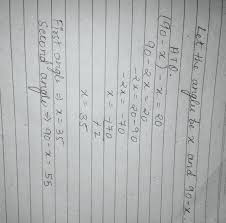 Let the angles be x and 90-x.
ATQ.
(90 - x) - x = 20
90 - 2x = 20
-2x = 20-90
-2x = -70
x = -70
-2
x = 35
First angle ⇒ x = 35
Second angle ⇒ 90-x = 55